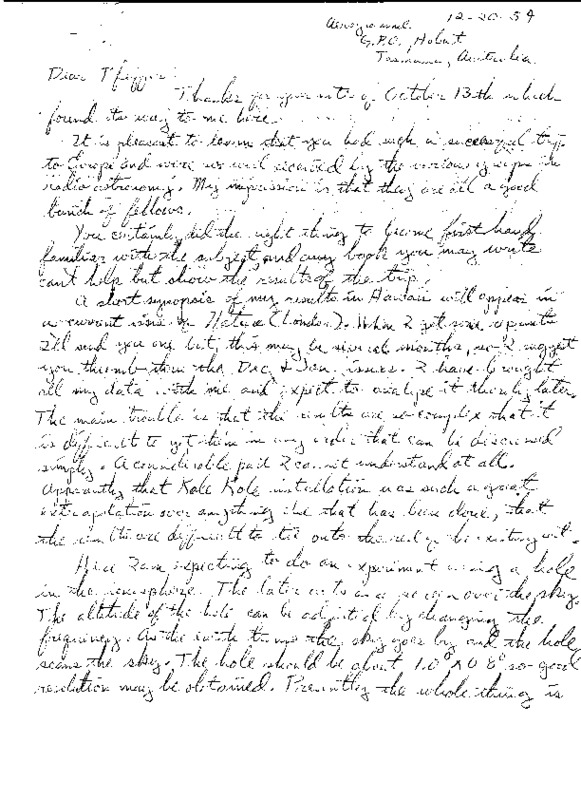 12-20-54
G.P.O., Hobart
Tasmania, Australia
Dear Pfeiffer:
Thanks for your note of October 13th which
found its way to me here.
It is pleasant to learn that you had such a successful trip
to Europe and were so well received by the various groups in
radio astronomy. My impression is that they are all a good
bunch of fellows.
You certainly did the right thing to become first hand
familiar with the subject and any book you may write
can't help but show the results of the trip.
A short synopsis of my results in Hawaii will appear in
a current issue of Nature (London). When I get some reprints
I'll send you one but this may be several months, so I suggest
you thumb thru the Dec & Jan. issues. I have brought
all my data with me and expect to analyze it thoroly later.
The main trouble is that the results are so complex that it
is difficult to get them in any order that can be discussed
simply. A considerable part I do not understand at all.
Apparently that Kole Kole installation was such a great
extrapolation over anything else that has been done, that
the results are difficult to tie onto the rest of the existing art.
Here I am expecting to do an experiment using a hole
in the ionosphere. The later acts as a screen over the sky.
The altitude of the hole can be adjusted by changing the
frequency. As the earth turns the sky goes by and the hole
scans the sky. The hole should be about 1.0° X 0.8° so good
resolution may be obtained. Presently the whole thing is